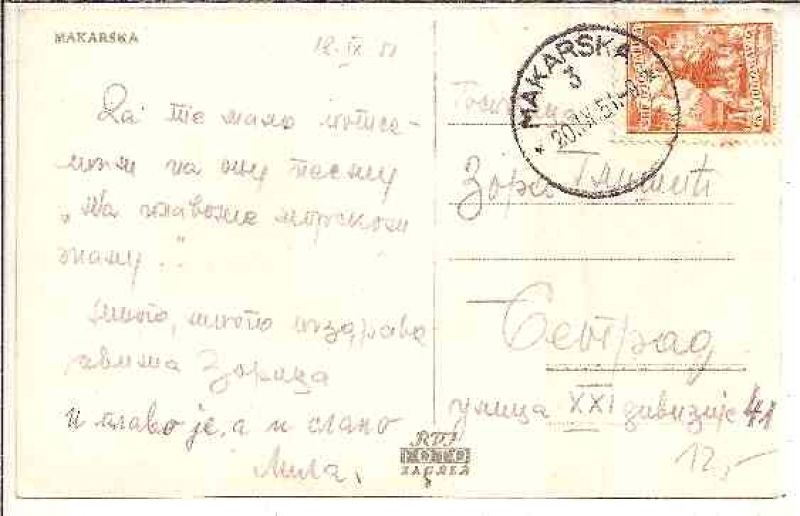 MAKARSKA
18. IX 51
Да те мало потсе-
тим на ону песму
„На плавоме морскоме
жалу..“
Много, много поздрава
свима Зорица
и плаво је, а и слано
Мила.
MAKARSKA
3
20.IX.51
Зора
Београд
улица XXI дивизије 41
FOTO
ZAGREB
12,-